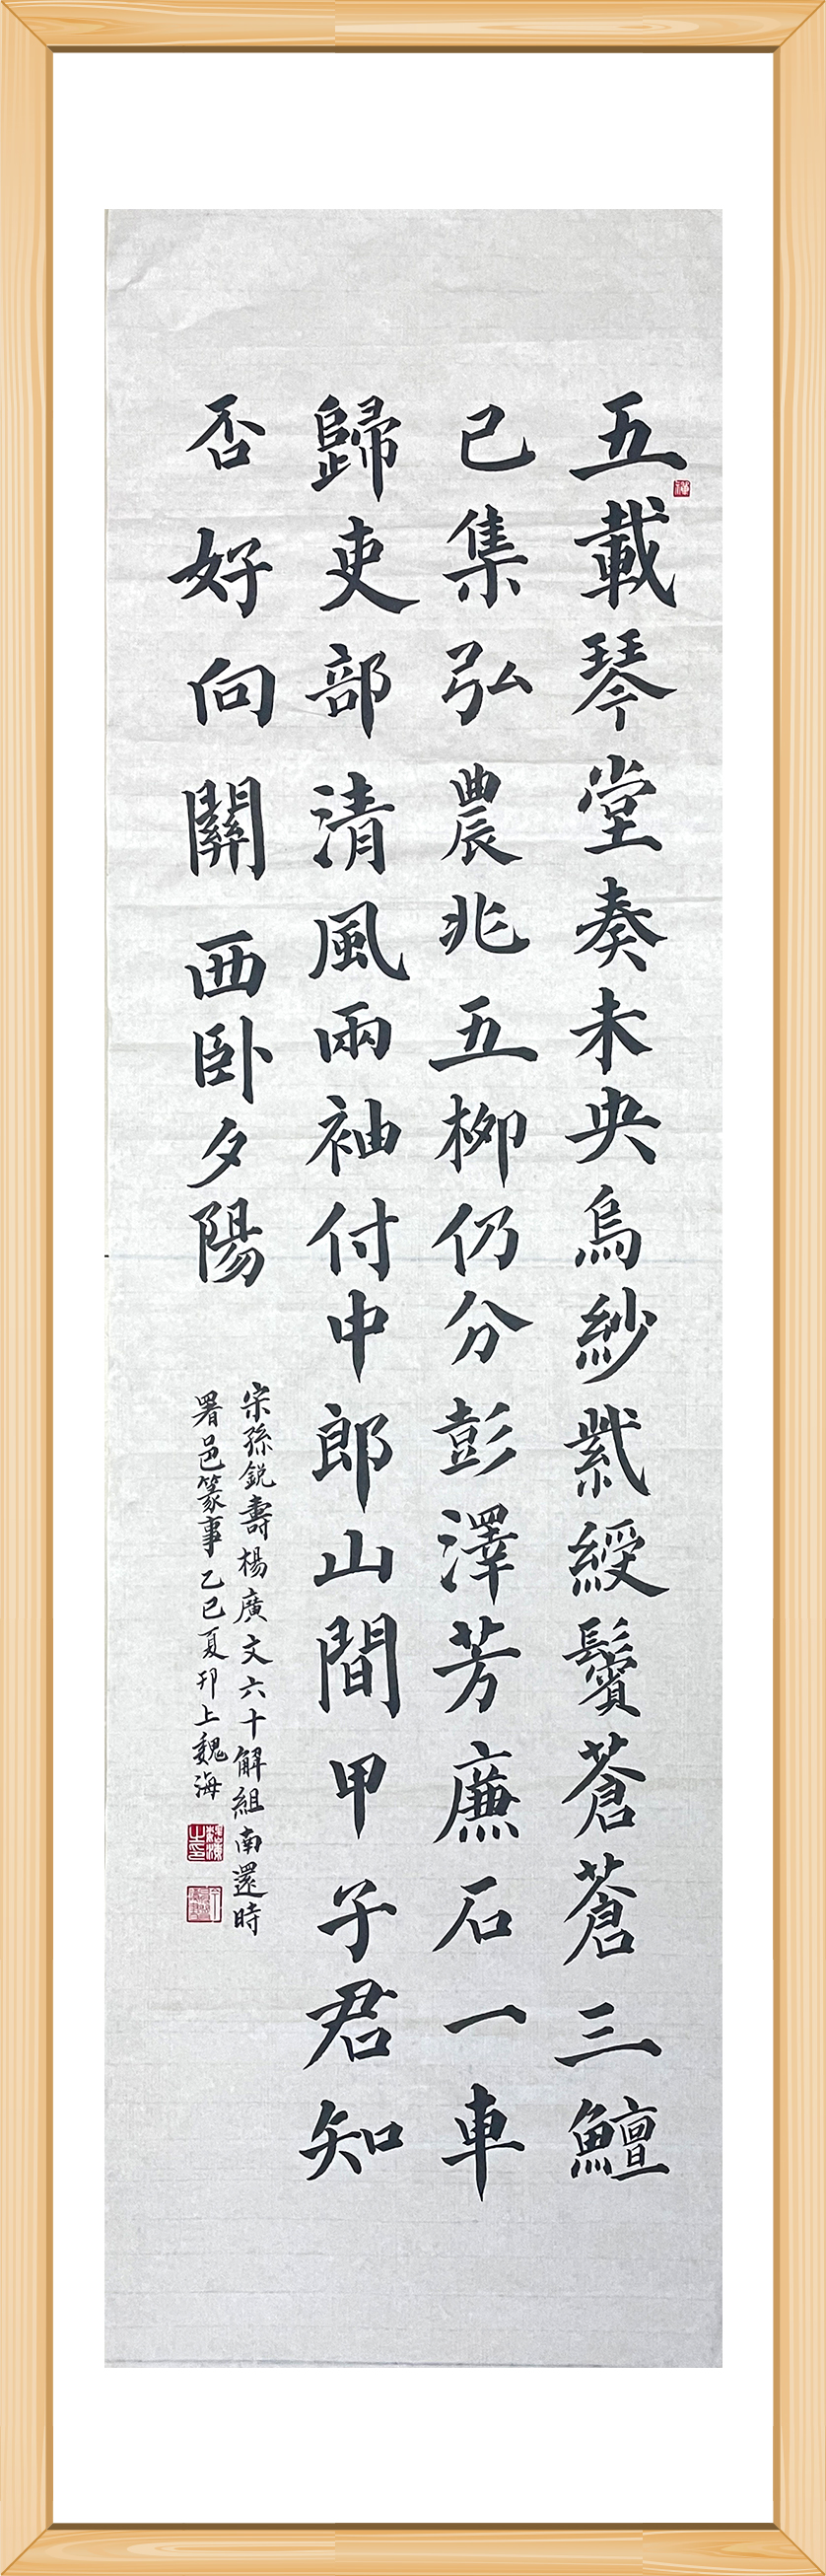 五載琴堂奏未央烏紗紫綬鬢蒼蒼三鱣
已集弘農兆五柳仍分彭澤芳廉石一車
歸吏部清風兩袖付中郎山間甲子君知
否好向關西卧夕陽
宋孫銳壽楊廣文六十解組南還時
署邑篆事乙巳夏邘上魏海